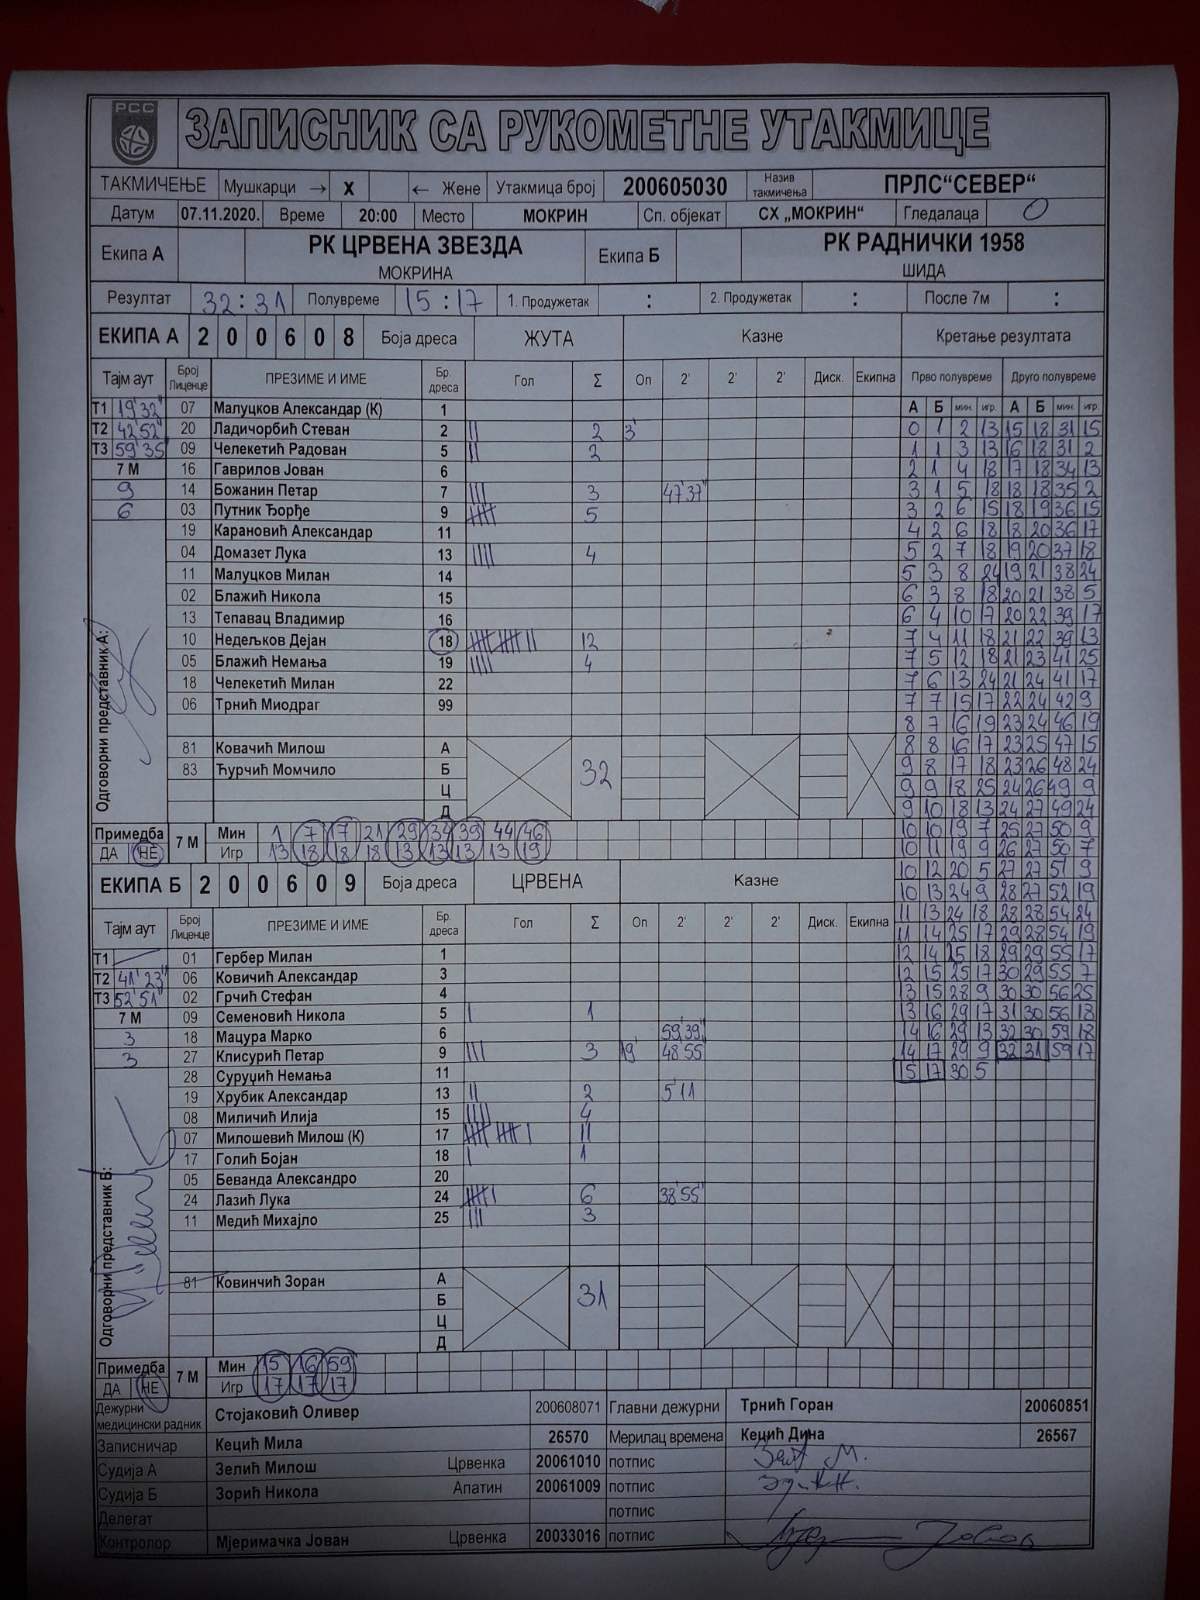 РСС
ЗАПИСНИК СА РУКОМЕТНЕ УТАКМИЦЕ
ТАКМИЧЕЊЕ Мушкарци → X ← Жене Утакмица број 200605030 Назив такмичења ПРЛС“СЕВЕР“
Датум 07.11.2020. Време 20:00 Место МОКРИН Сп. објекат СХ „МОКРИН“ Гледалаца 0
Екипа А РК ЦРВЕНА ЗВЕЗДА МОКРИНА Екипа Б РК РАДНИЧКИ 1958 ШИДА
Резултат 32:31 Полувреме 15:17 1. Продужетак : 2. Продужетак : После 7м :
ЕКИПА А 2 0 0 6 0 8 Боја дреса ЖУТА Казне Кретање резултата
Тајм аут Број Лиценце ПРЕЗИМЕ И ИМЕ Бр. дреса Гол Σ Оп 2' 2' 2' Диск. Екипна Прво полувреме Друго полувреме
Т1 19'32" 07 Малуцков Александар (К) 1 А Б мин. игр. А Б мин. игр.
Т2 42'52" 20 Ладичорбић Стеван 2 || 2 3' 0 1 2 13 15 18 31 15
Т3 59'35" 09 Челекетић Радован 5 || 2 1 1 3 13 16 18 31 2
7 М 16 Гаврилов Јован 6 2 1 4 18 17 18 34 13
9 14 Божанин Петар 7 ||| 3 47'37" 3 1 5 18 18 18 35 2
6 03 Путник Ђорђе 9 5 3 2 6 15 18 19 36 15
19 Карановић Александар 11 4 2 6 18 18 20 36 17
04 Домазет Лука 13 |||| 4 5 2 7 18 19 20 37 18
11 Малуцков Милан 14 5 3 8 24 19 21 38 24
02 Блажић Никола 15 6 3 8 18 20 21 38 5
13 Тепавац Владимир 16 6 4 10 17 20 22 39 17
10 Недељков Дејан 18 12 7 4 11 18 21 22 39 13
05 Блажић Немања 19 |||| 4 7 5 12 18 21 23 41 25
18 Челекетић Милан 22 7 6 13 24 21 24 41 17
06 Трнић Миодраг 99 7 7 15 17 22 24 42 9
8 7 16 19 23 24 46 19
81 Ковачић Милош А 32 8 8 16 17 23 25 47 15
83 Ђурчић Момчило Б 9 8 17 18 23 26 48 24
Ц 9 9 18 25 24 26 49 9
Д 9 10 18 13 24 27 49 24
Примедба 7 М Мин 1 7 7 21 29 34 39 44 46 10 10 19 7 25 27 50 9
ДА НЕ Игр 13 18 18 18 13 13 13 13 19 10 11 19 9 26 27 50 7
ЕКИПА Б 2 0 0 6 0 9 Боја дреса ЦРВЕНА Казне 10 12 20 5 27 27 51 9
10 13 24 9 28 27 52 19
Тајм аут Број Лиценце ПРЕЗИМЕ И ИМЕ Бр. дреса Гол Σ Оп 2' 2' 2' Диск. Екипна 11 13 24 18 28 28 54 24
11 14 25 17 29 28 54 19
Т1 01 Гербер Милан 1 12 14 25 18 29 29 55 17
Т2 41'23" 06 Ковичић Александар 3 12 15 25 17 30 29 55 7
Т3 52'51" 02 Грчић Стефан 4 13 15 28 9 30 30 56 25
7 М 09 Семеновић Никола 5 | 1 13 16 29 17 31 30 56 18
3 18 Мацура Марко 6 59'39" 14 16 29 13 32 30 59 18
3 27 Клисурић Петар 9 ||| 3 19' 48'55 14 17 29 9 32 31 59 17
28 Суруџић Немања 11 15 17 30 5
19 Хрубик Александар 13 || 2 5'11
08 Миличић Илија 15 |||| 4
07 Милошевић Милош (К) 17 11
17 Голић Бојан 18 | 1
05 Беванда Александро 20
24 Лазић Лука 24 6 38'55"
11 Медић Михајло 25 ||| 3
81 Ковинчић Зоран А 31
Б
Ц
Д
Одговорни представник А:
Одговорни представник Б:
Примедба 7 М Мин 15 16 59
ДА НЕ Игр 17 17 17
Дежурни медицински радник Стојаковић Оливер 200608071 Главни дежурни Трнић Горан 20060851
Записничар Кецић Мила 26570 Мерилац времена Кецић Дина 26567
Судија А Зелић Милош Црвенка 20061010 потпис
Судија Б Зорић Никола Апатин 20061009 потпис
Делегат потпис
Контролор Мјеримачка Јован Црвенка 20033016 потпис